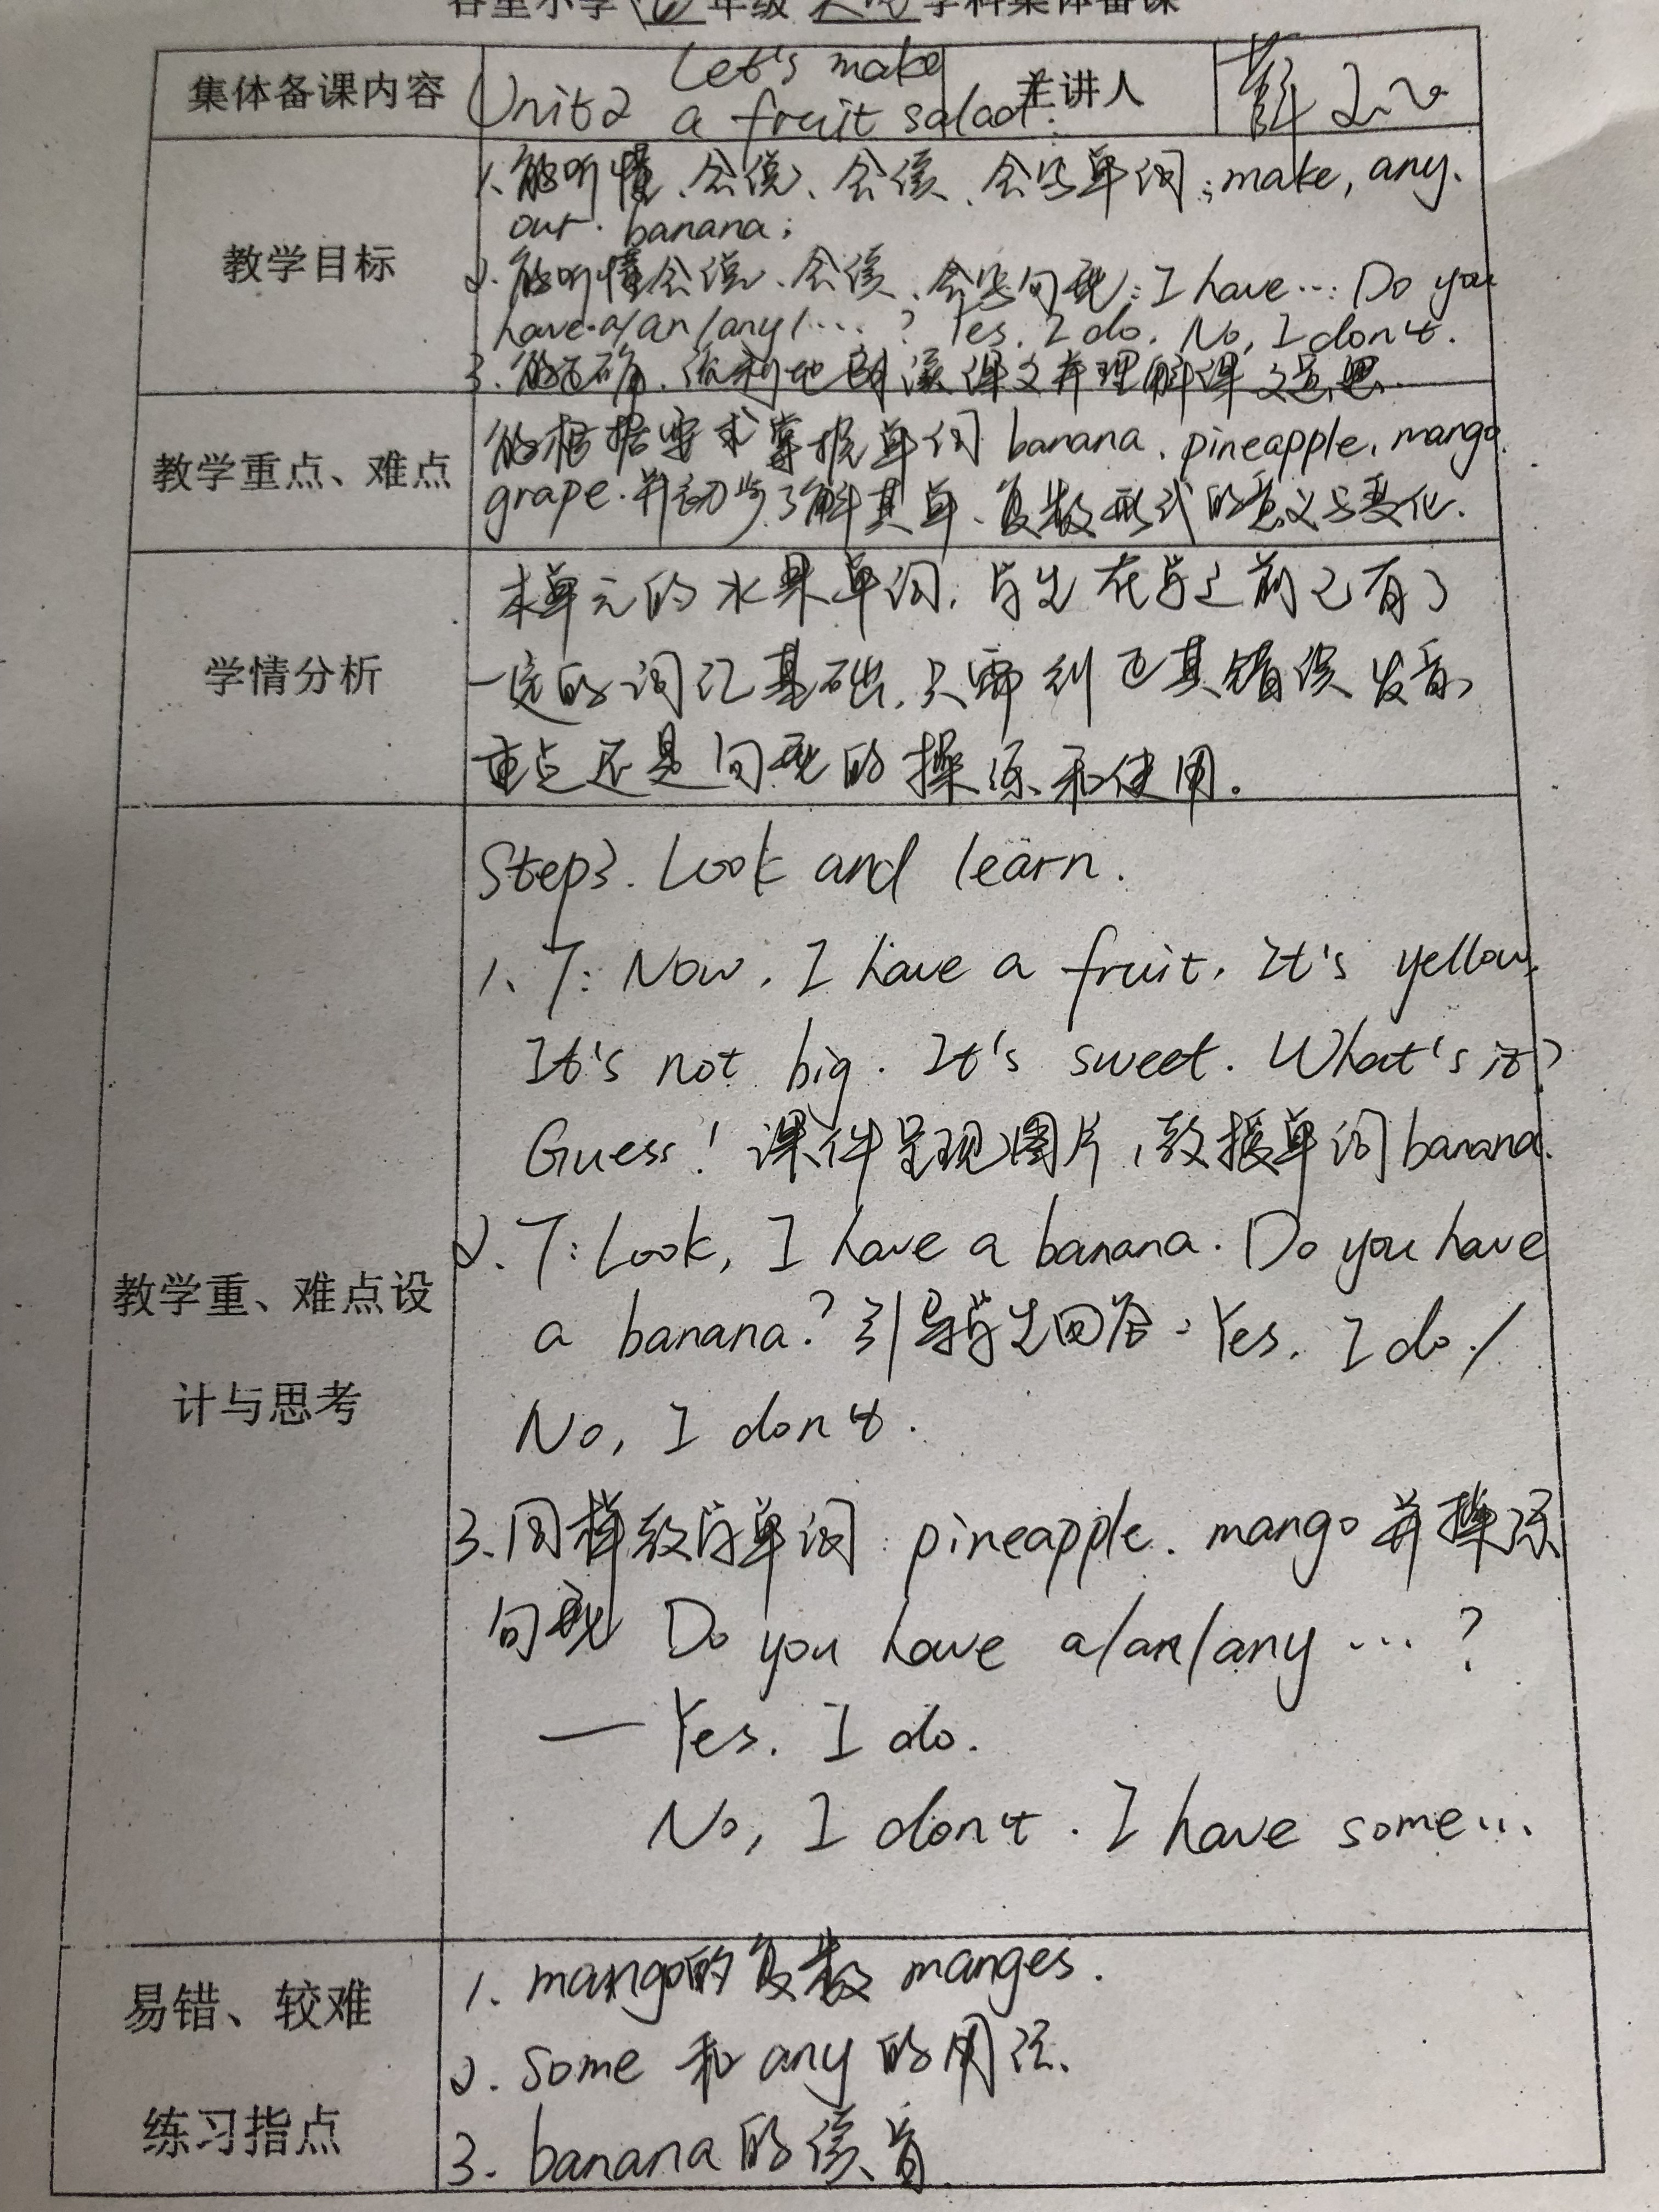 小学 四 年级 英语 学科集体备课
集体备课内容
Unit2 Let's make
a fruit salad.
主讲人
教学目标
1、能听懂、会说、会读、会写单词:make, any,
our. banana;
2. 能听懂会说、会读、会写句型:I have…: Do you
have a/an/any/…? Yes, I do. No, I don't.
3. 能正确、流利地朗读课文并理解课文意思.
教学重点、难点
能根据要求掌握单词 banana、pineapple、mango
grape.并初步了解其单、复数形式的意义与变化.
学情分析
本单元的水果单词,学生在学之前已有了
一定的词汇基础,只需纠正其错误发音,
重点还是句型的操练和使用。
教学重、难点设
计与思考
Step3. Look and learn.
1、T: Now, I have a fruit, It's yellow,
It's not big. It's sweet. What's it?
Guess! 课件呈现图片,教授单词banana.
2. T: Look, I have a banana. Do you have
a banana? 引导学生回答: Yes, I do. /
No, I don't.
3.同样教学单词:pineapple. mango 并操练
句型 Do you have a/an/any …?
— Yes. I do.
No, I don't. I have some…
易错、较难
练习指点
1. mango的复数 manges.
2. some 和 any 的用法.
3. banana 的读音.